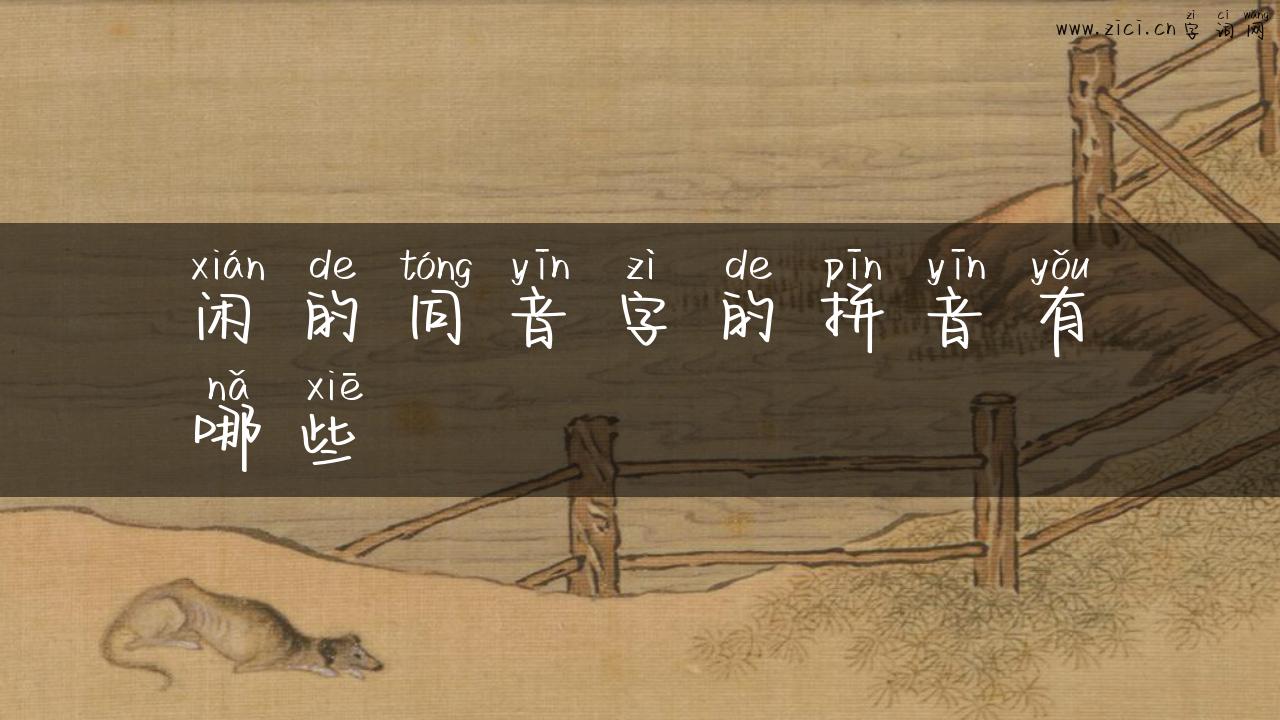 zì cí wǎng
www.zici.cn 字词网
xián de tóng yīn zì de pīn yīn yǒu
闲的同音字的拼音有
nǎ xiē
哪些